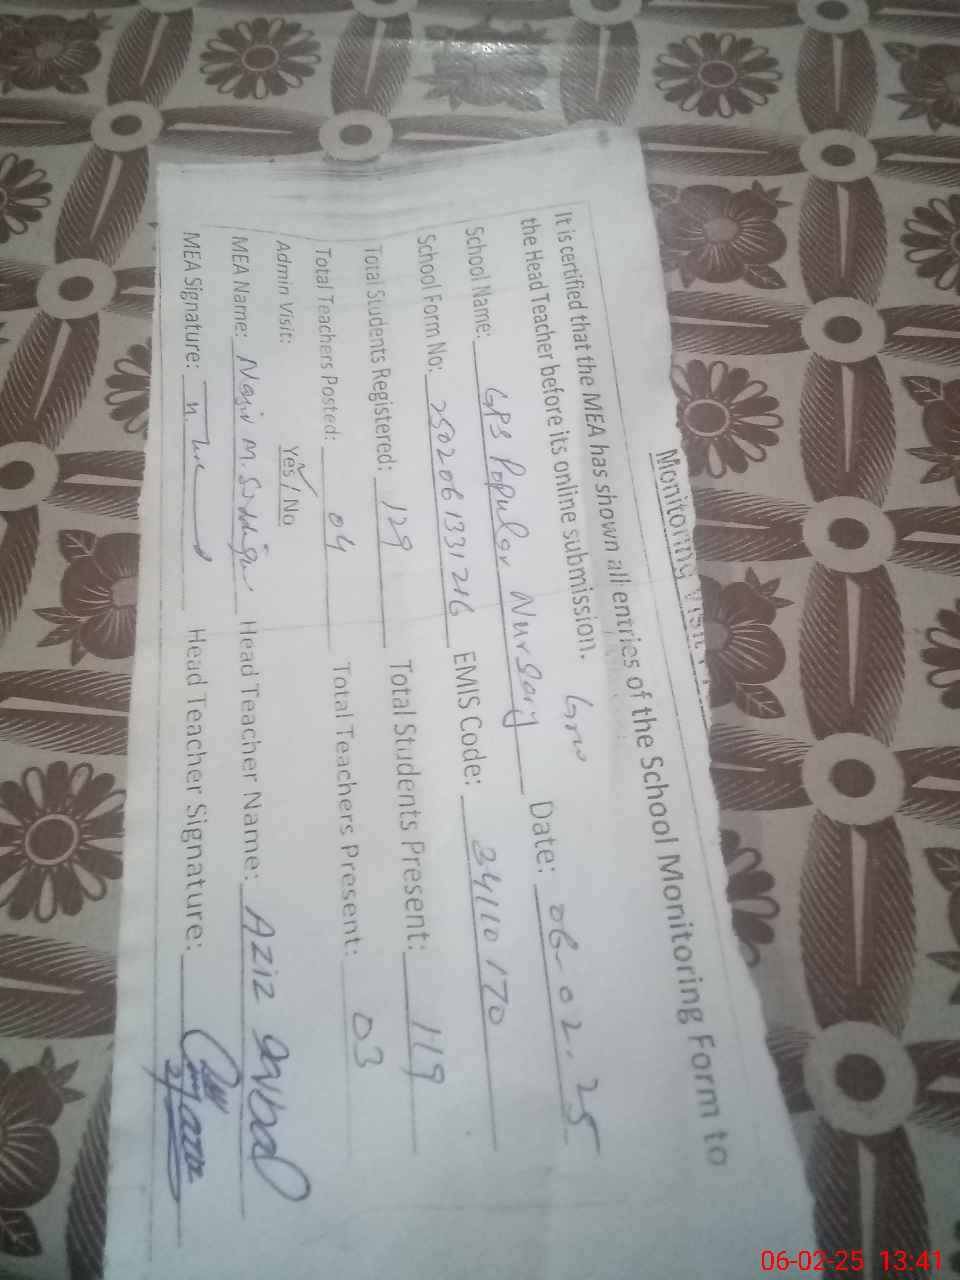 Monitoring Visit
It is certified that the MEA has shown all entries of the School Monitoring Form to
the Head Teacher before its online submission.
School Name: GPS Popular Nursary Date: 06-02-25
School Form No: 250206133126 EMIS Code: 34110170
Total Students Registered: 129 Total Students Present: 119
Total Teachers Posted: 04 Total Teachers Present: 03
Admin Visit: Yes / No
MEA Name: Nasir M. Siddique Head Teacher Name: Aziz
MEA Signature: Head Teacher Signature:
06-02-25 13:41